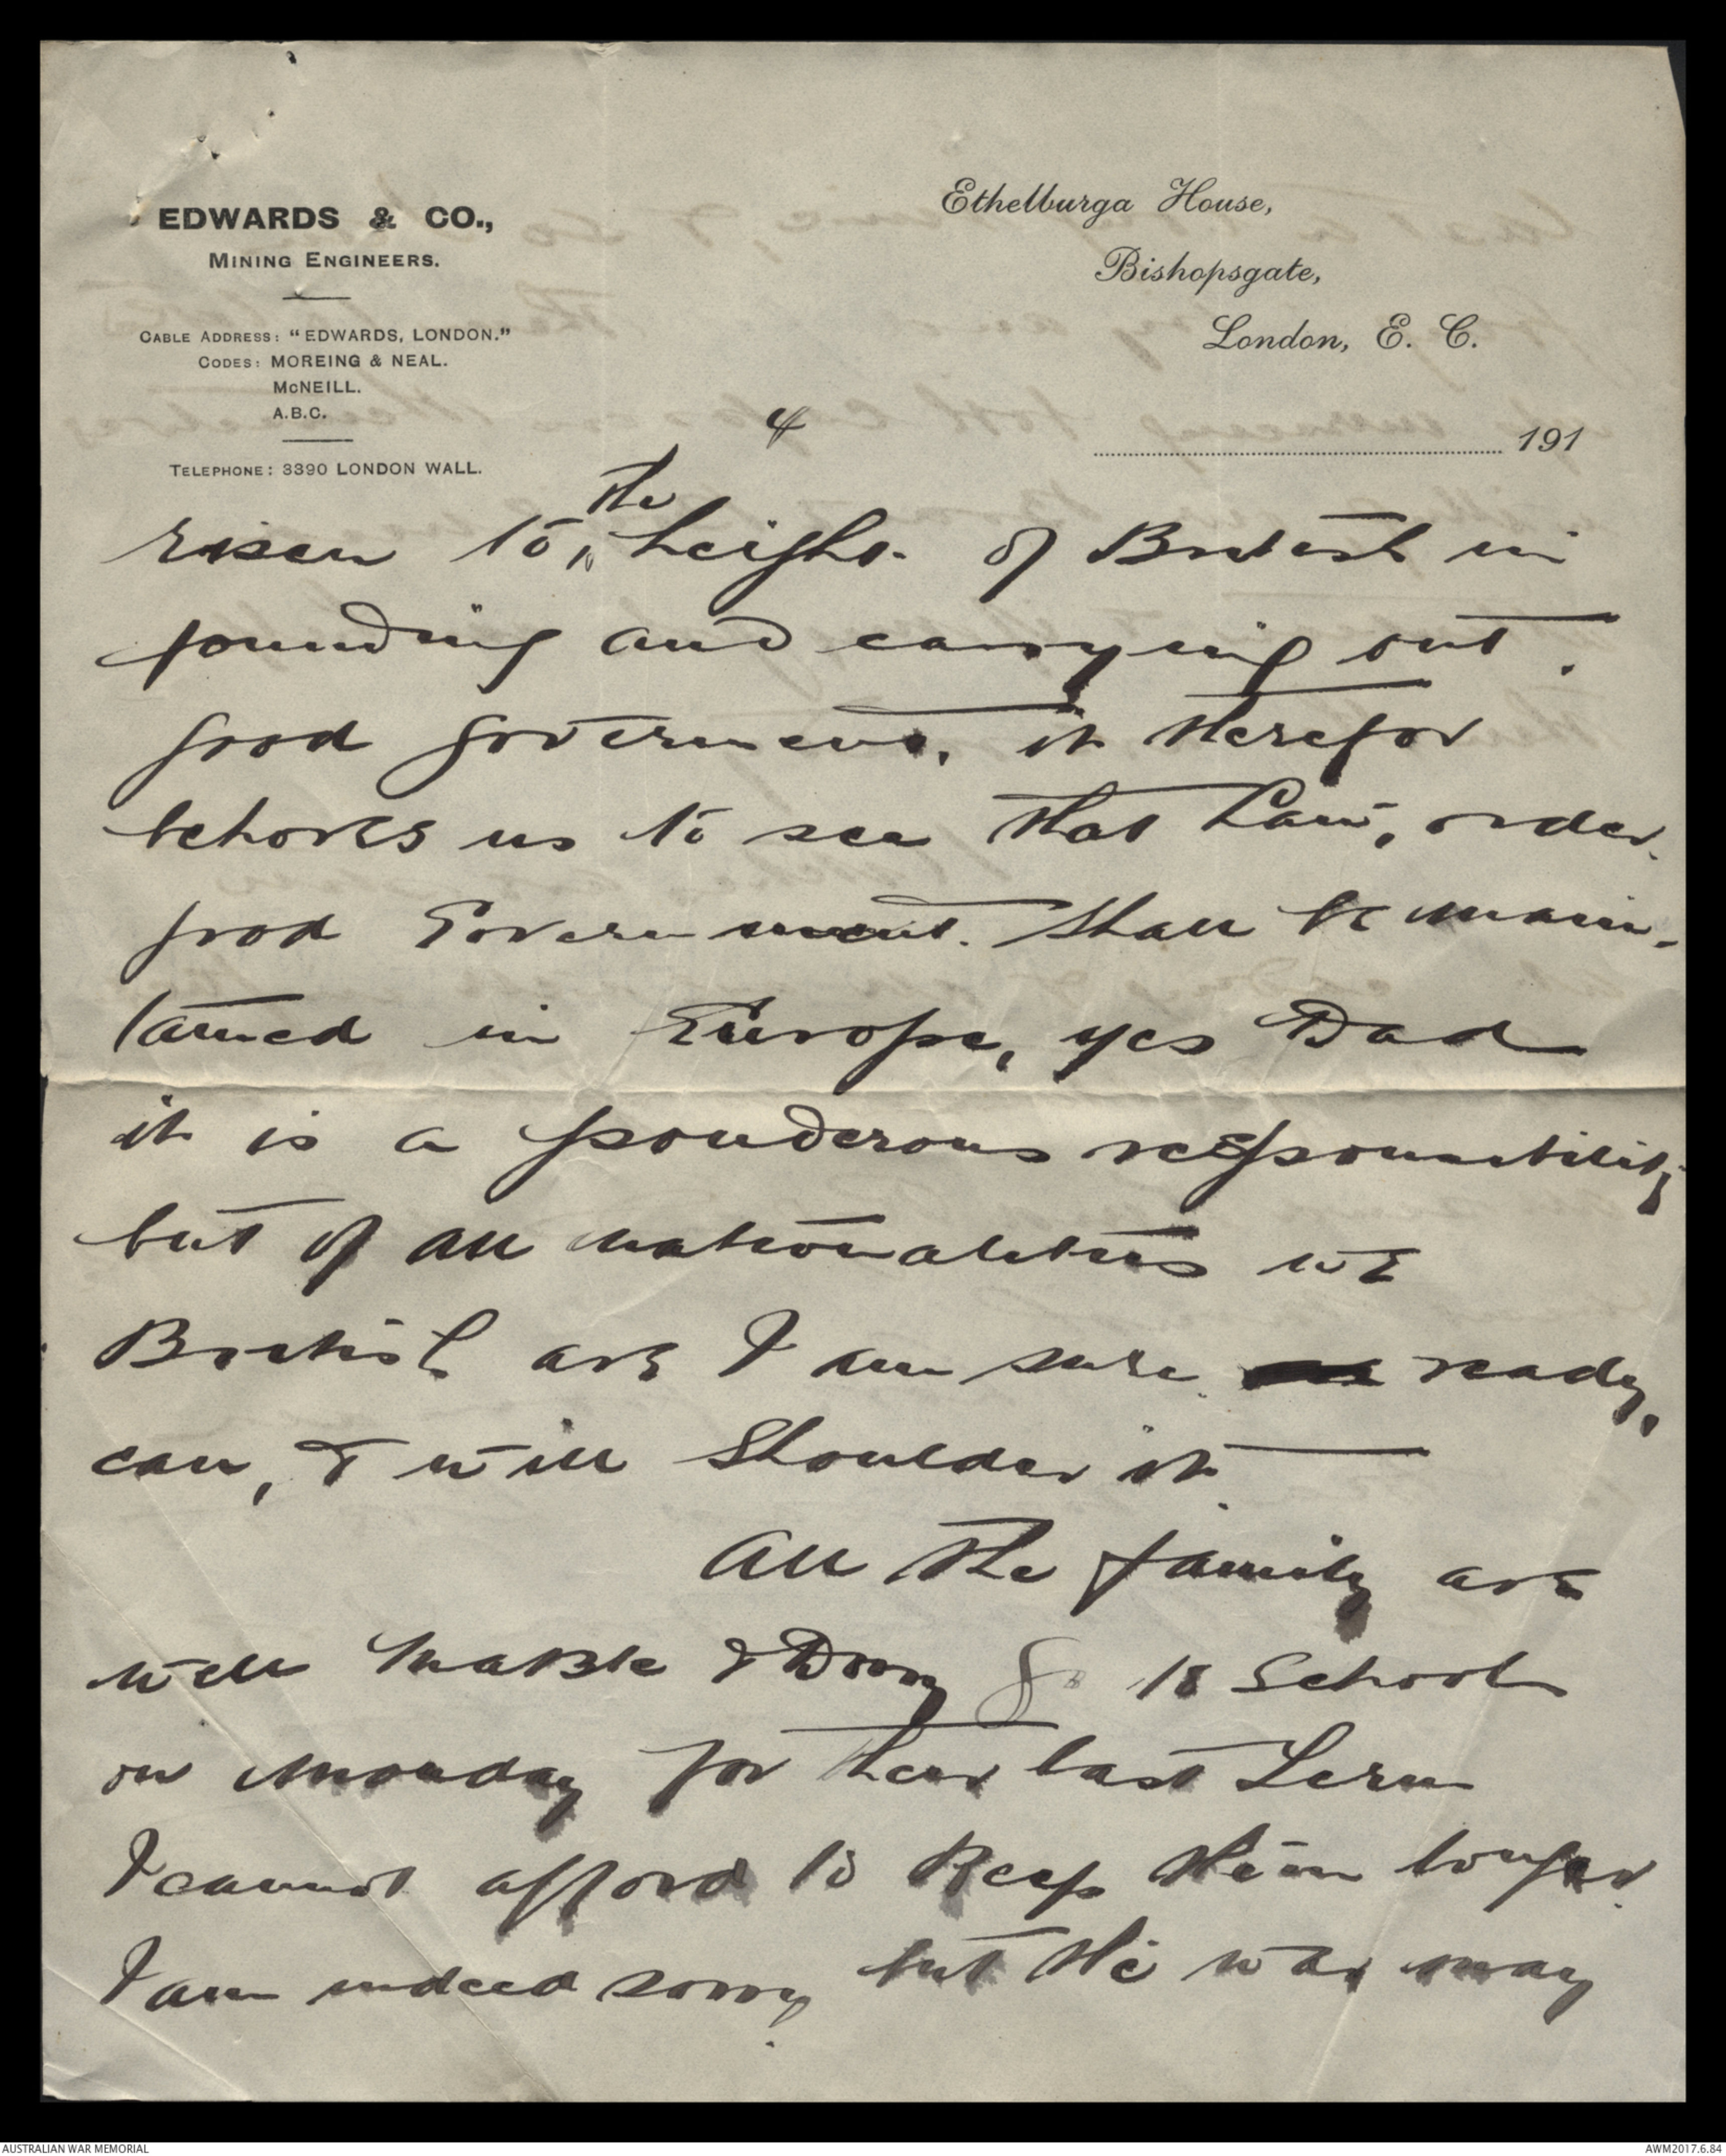 EDWARDS & CO.,
MINING ENGINEERS.
CABLE ADDRESS: "EDWARDS, LONDON."
CODES: MOREING & NEAL.
McNEILL.
A.B.C.
TELEPHONE: 3390 LONDON WALL.
Ethelburga House,
Bishopsgate,
London, E. C.
191
4
risen to the height of British in
founding and carrying out.
good government, it therefor
behoves us to see that Law, order
good Government. shall be main-
tained in Europe, yes Dad
it is a ponderous responsibility
but of all nationalities we
British are I am sure ready,
can, & will shoulder it
All the family are
well & go to School
on Monday for their last Term
I cannot afford to keep them longer
I am indeed sorry but the war may
AUSTRALIAN WAR MEMORIAL
AWM2017.6.84